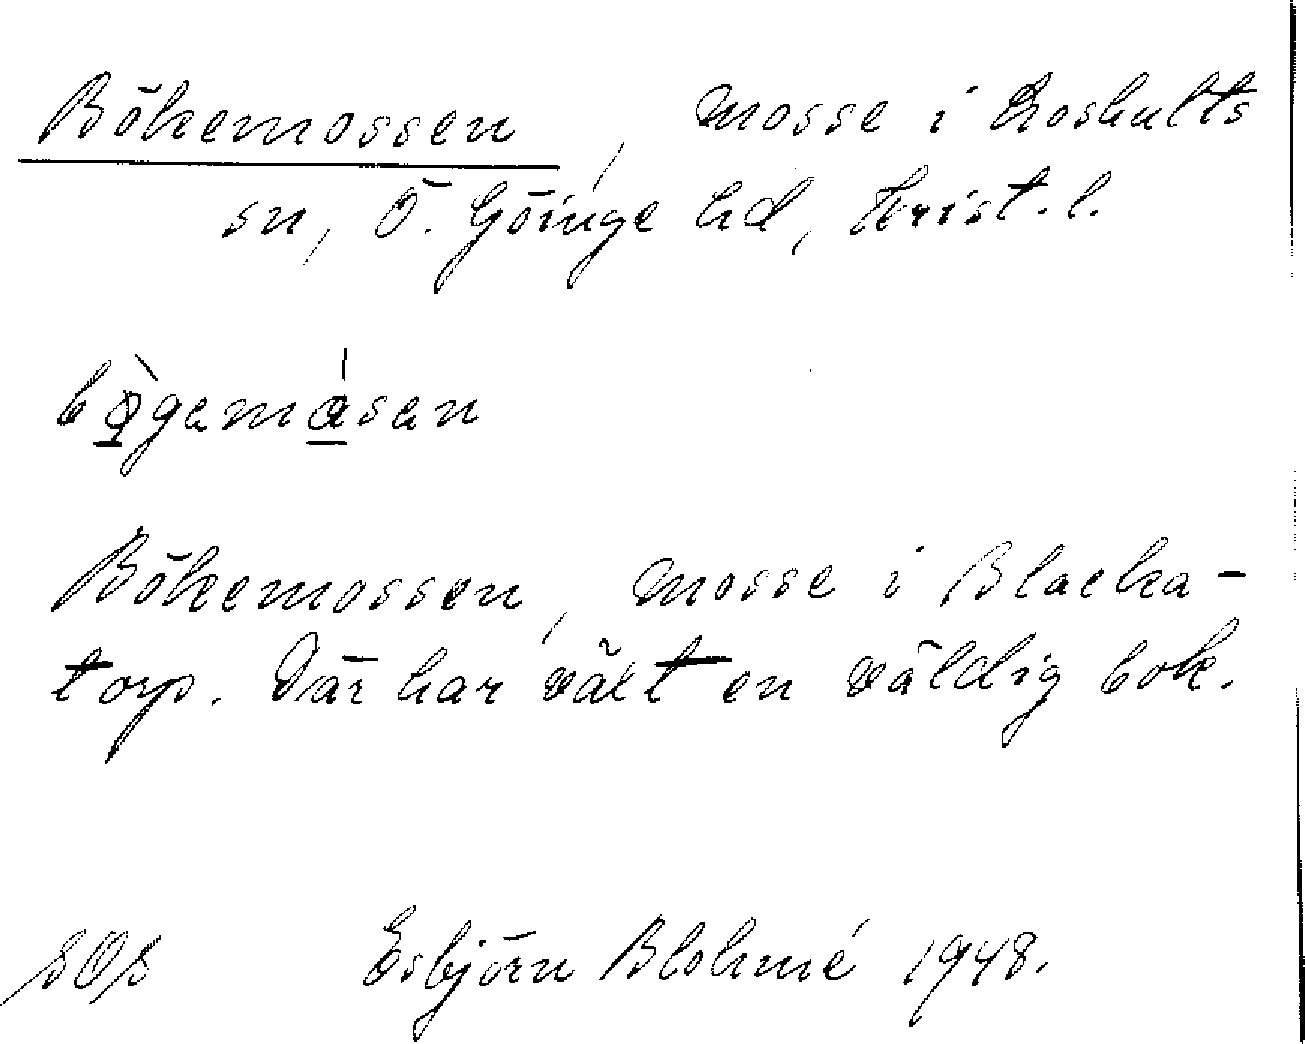 Bökemossen, mosse i Loshults
sn, Ö. Göinge hd, Krist. l.
Bökemossen, mosse i Blacka-
torp. Där har växt en väldig bok.
SOS Esbjörn Blohmé 1948.